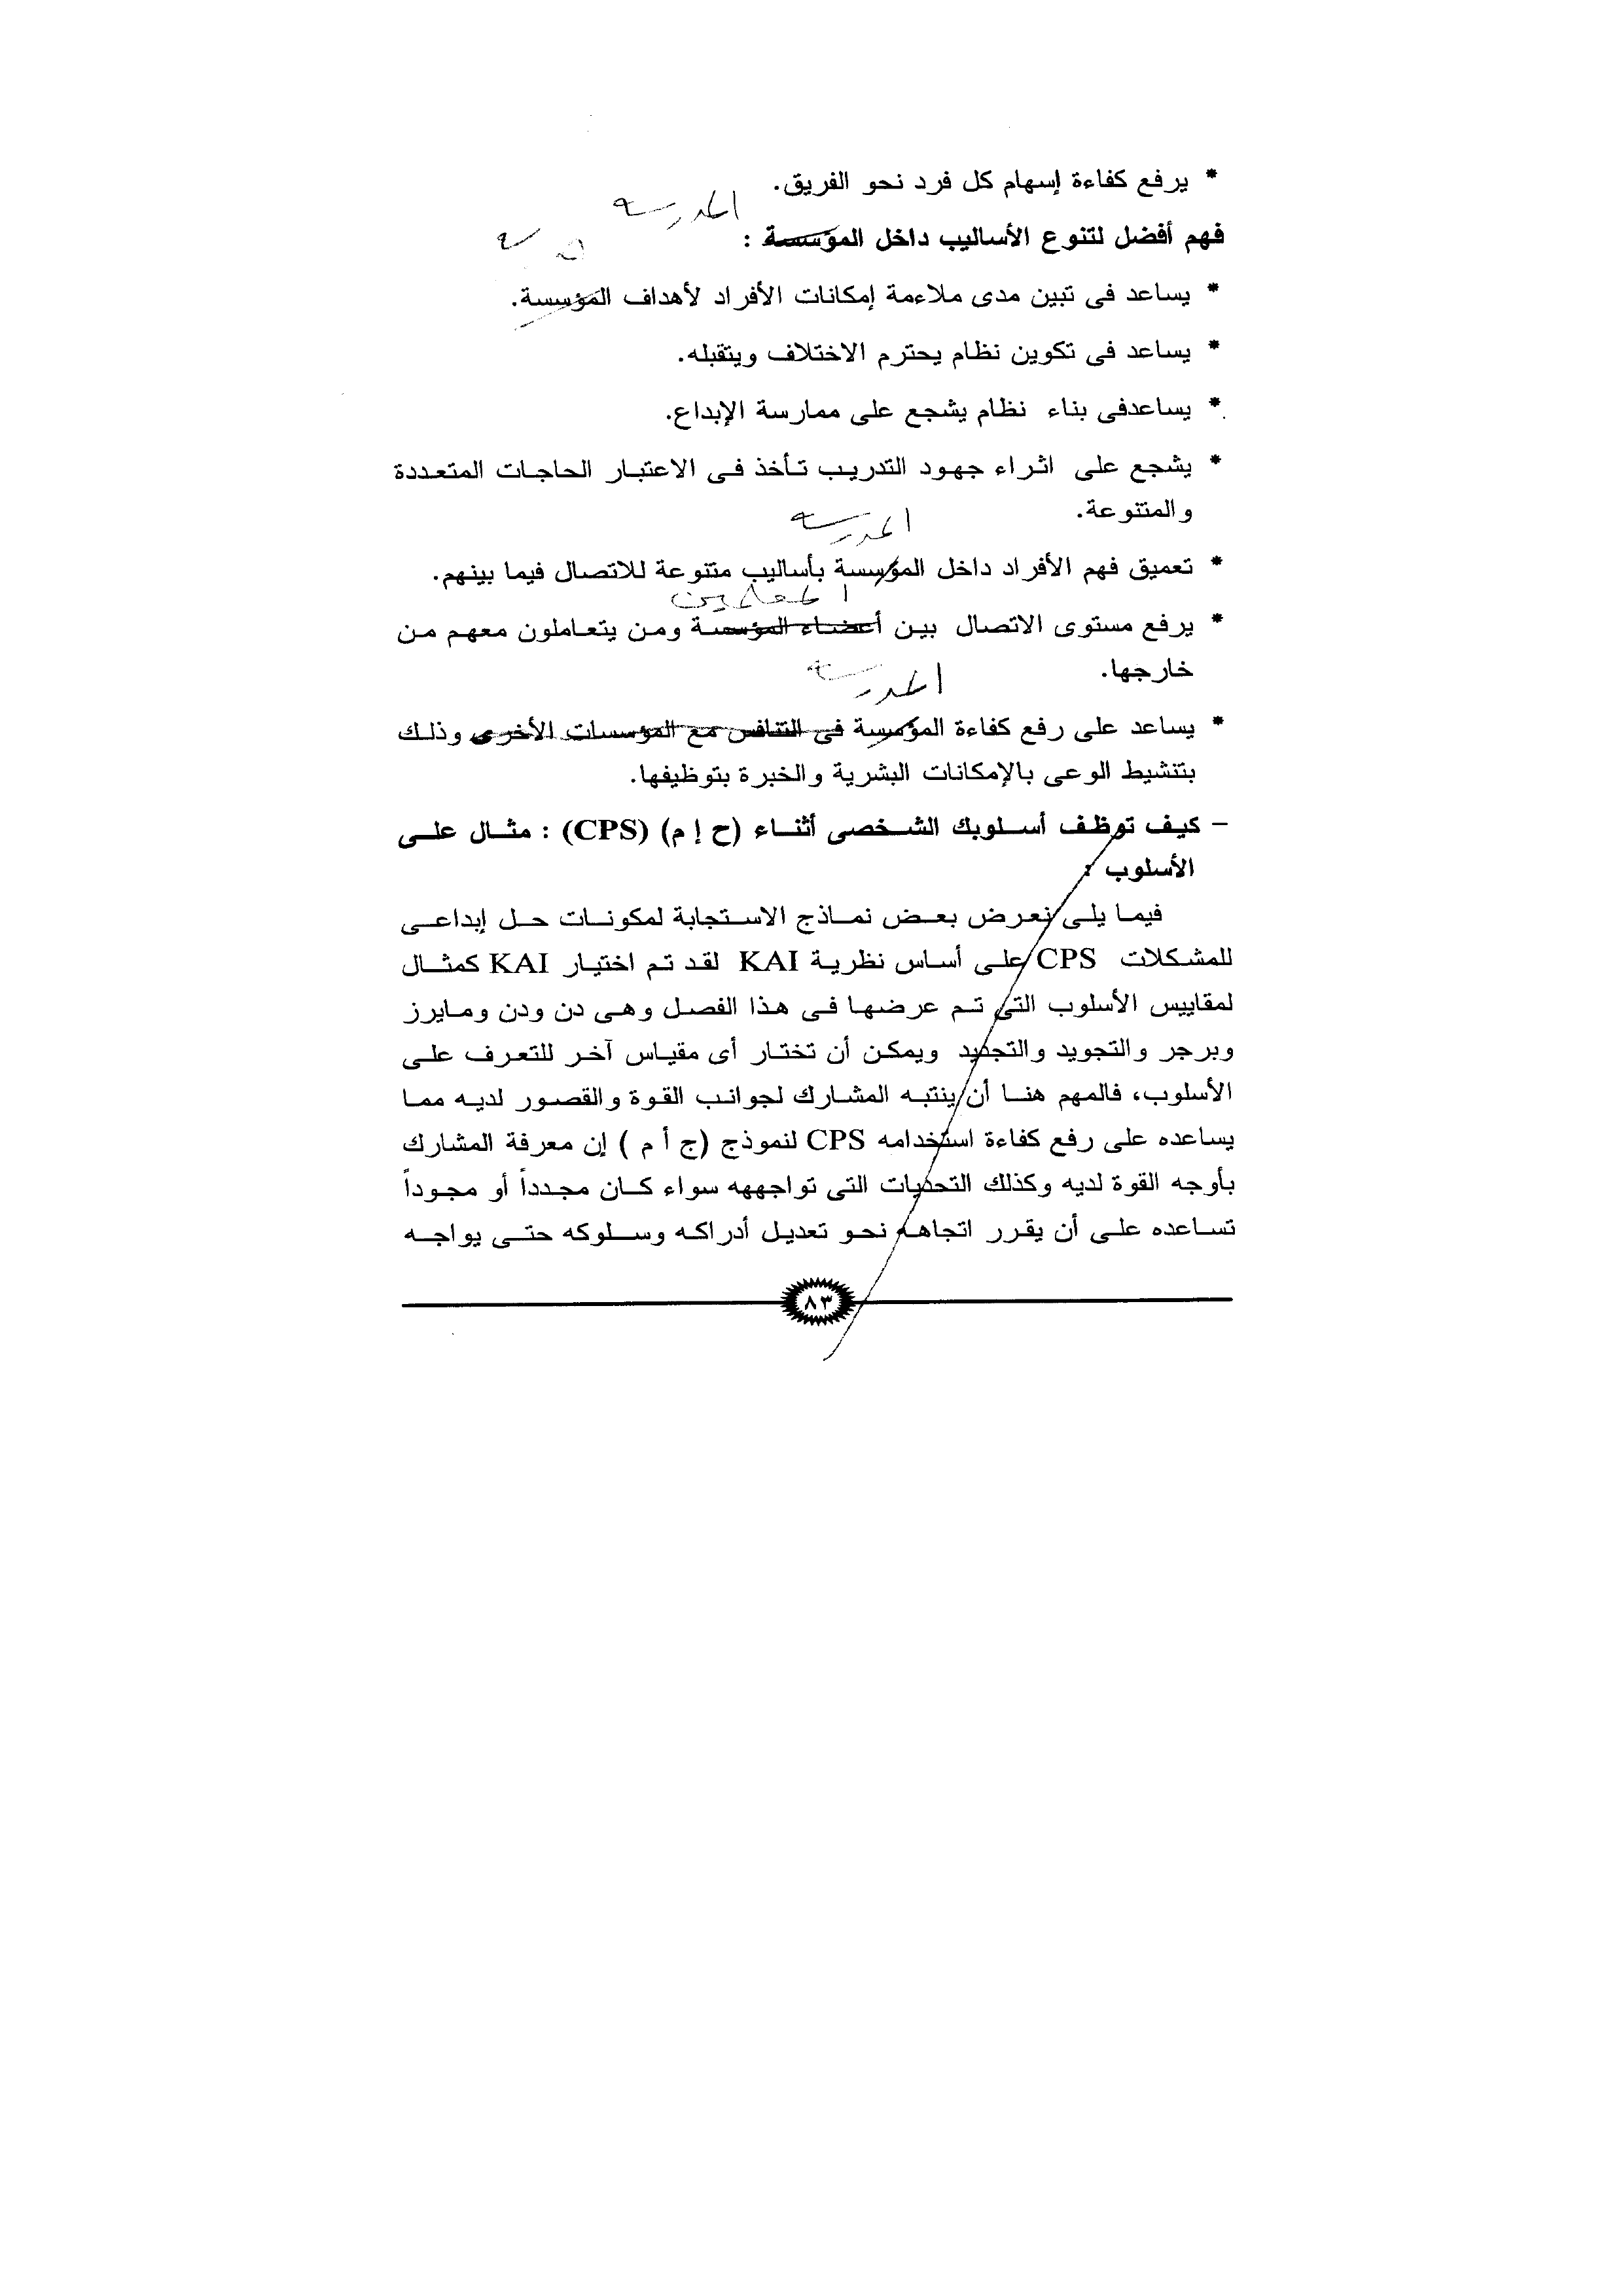 * يرفع كفاءة إسهام كل فرد نحو الفريق.
المدرسة
فهم أفضل لتنوع الأساليب داخل المؤسسة :
* يساعد فى تبين مدى ملاءمة إمكانات الأفراد لأهداف المؤسسة.
* يساعد فى تكوين نظام يحترم الاختلاف ويتقبله.
* يساعدفى بناء نظام يشجع على ممارسة الإبداع.
* يشجع على اثراء جهود التدريب تأخذ فى الاعتبار الحاجات المتعددة
والمتنوعة.
المدرسة
* تعميق فهم الأفراد داخل المؤسسة بأساليب متنوعة للاتصال فيما بينهم.
المعلمين
* يرفع مستوى الاتصال بين أعضاء المؤسسة ومن يتعاملون معهم من
خارجها.
المدرسة
* يساعد على رفع كفاءة المؤسسة فى التنافس مع المؤسسات الأخرى وذلك
بتنشيط الوعى بالإمكانات البشرية والخبرة بتوظيفها.
– كيف توظف أسلوبك الشخصى أثناء (ح إ م) (CPS) : مثال على
الأسلوب :
فيما يلى نعرض بعض نماذج الاستجابة لمكونات حل إبداعى
للمشكلات CPS على أساس نظرية KAI لقد تم اختيار KAI كمثال
لمقاييس الأسلوب التى تم عرضها فى هذا الفصل وهى دن ودن ومايرز
وبرجر والتجويد والتجديد ويمكن أن تختار أى مقياس آخر للتعرف على
الأسلوب، فالمهم هنا أن ينتبه المشارك لجوانب القوة والقصور لديه مما
يساعده على رفع كفاءة استخدامه CPS لنموذج (ج أ م ) إن معرفة المشارك
بأوجه القوة لديه وكذلك التحديات التى تواجهه سواء كان مجدداً أو مجوداً
تساعده على أن يقرر اتجاهه نحو تعديل أدراكه وسلوكه حتى يواجه
٨٣